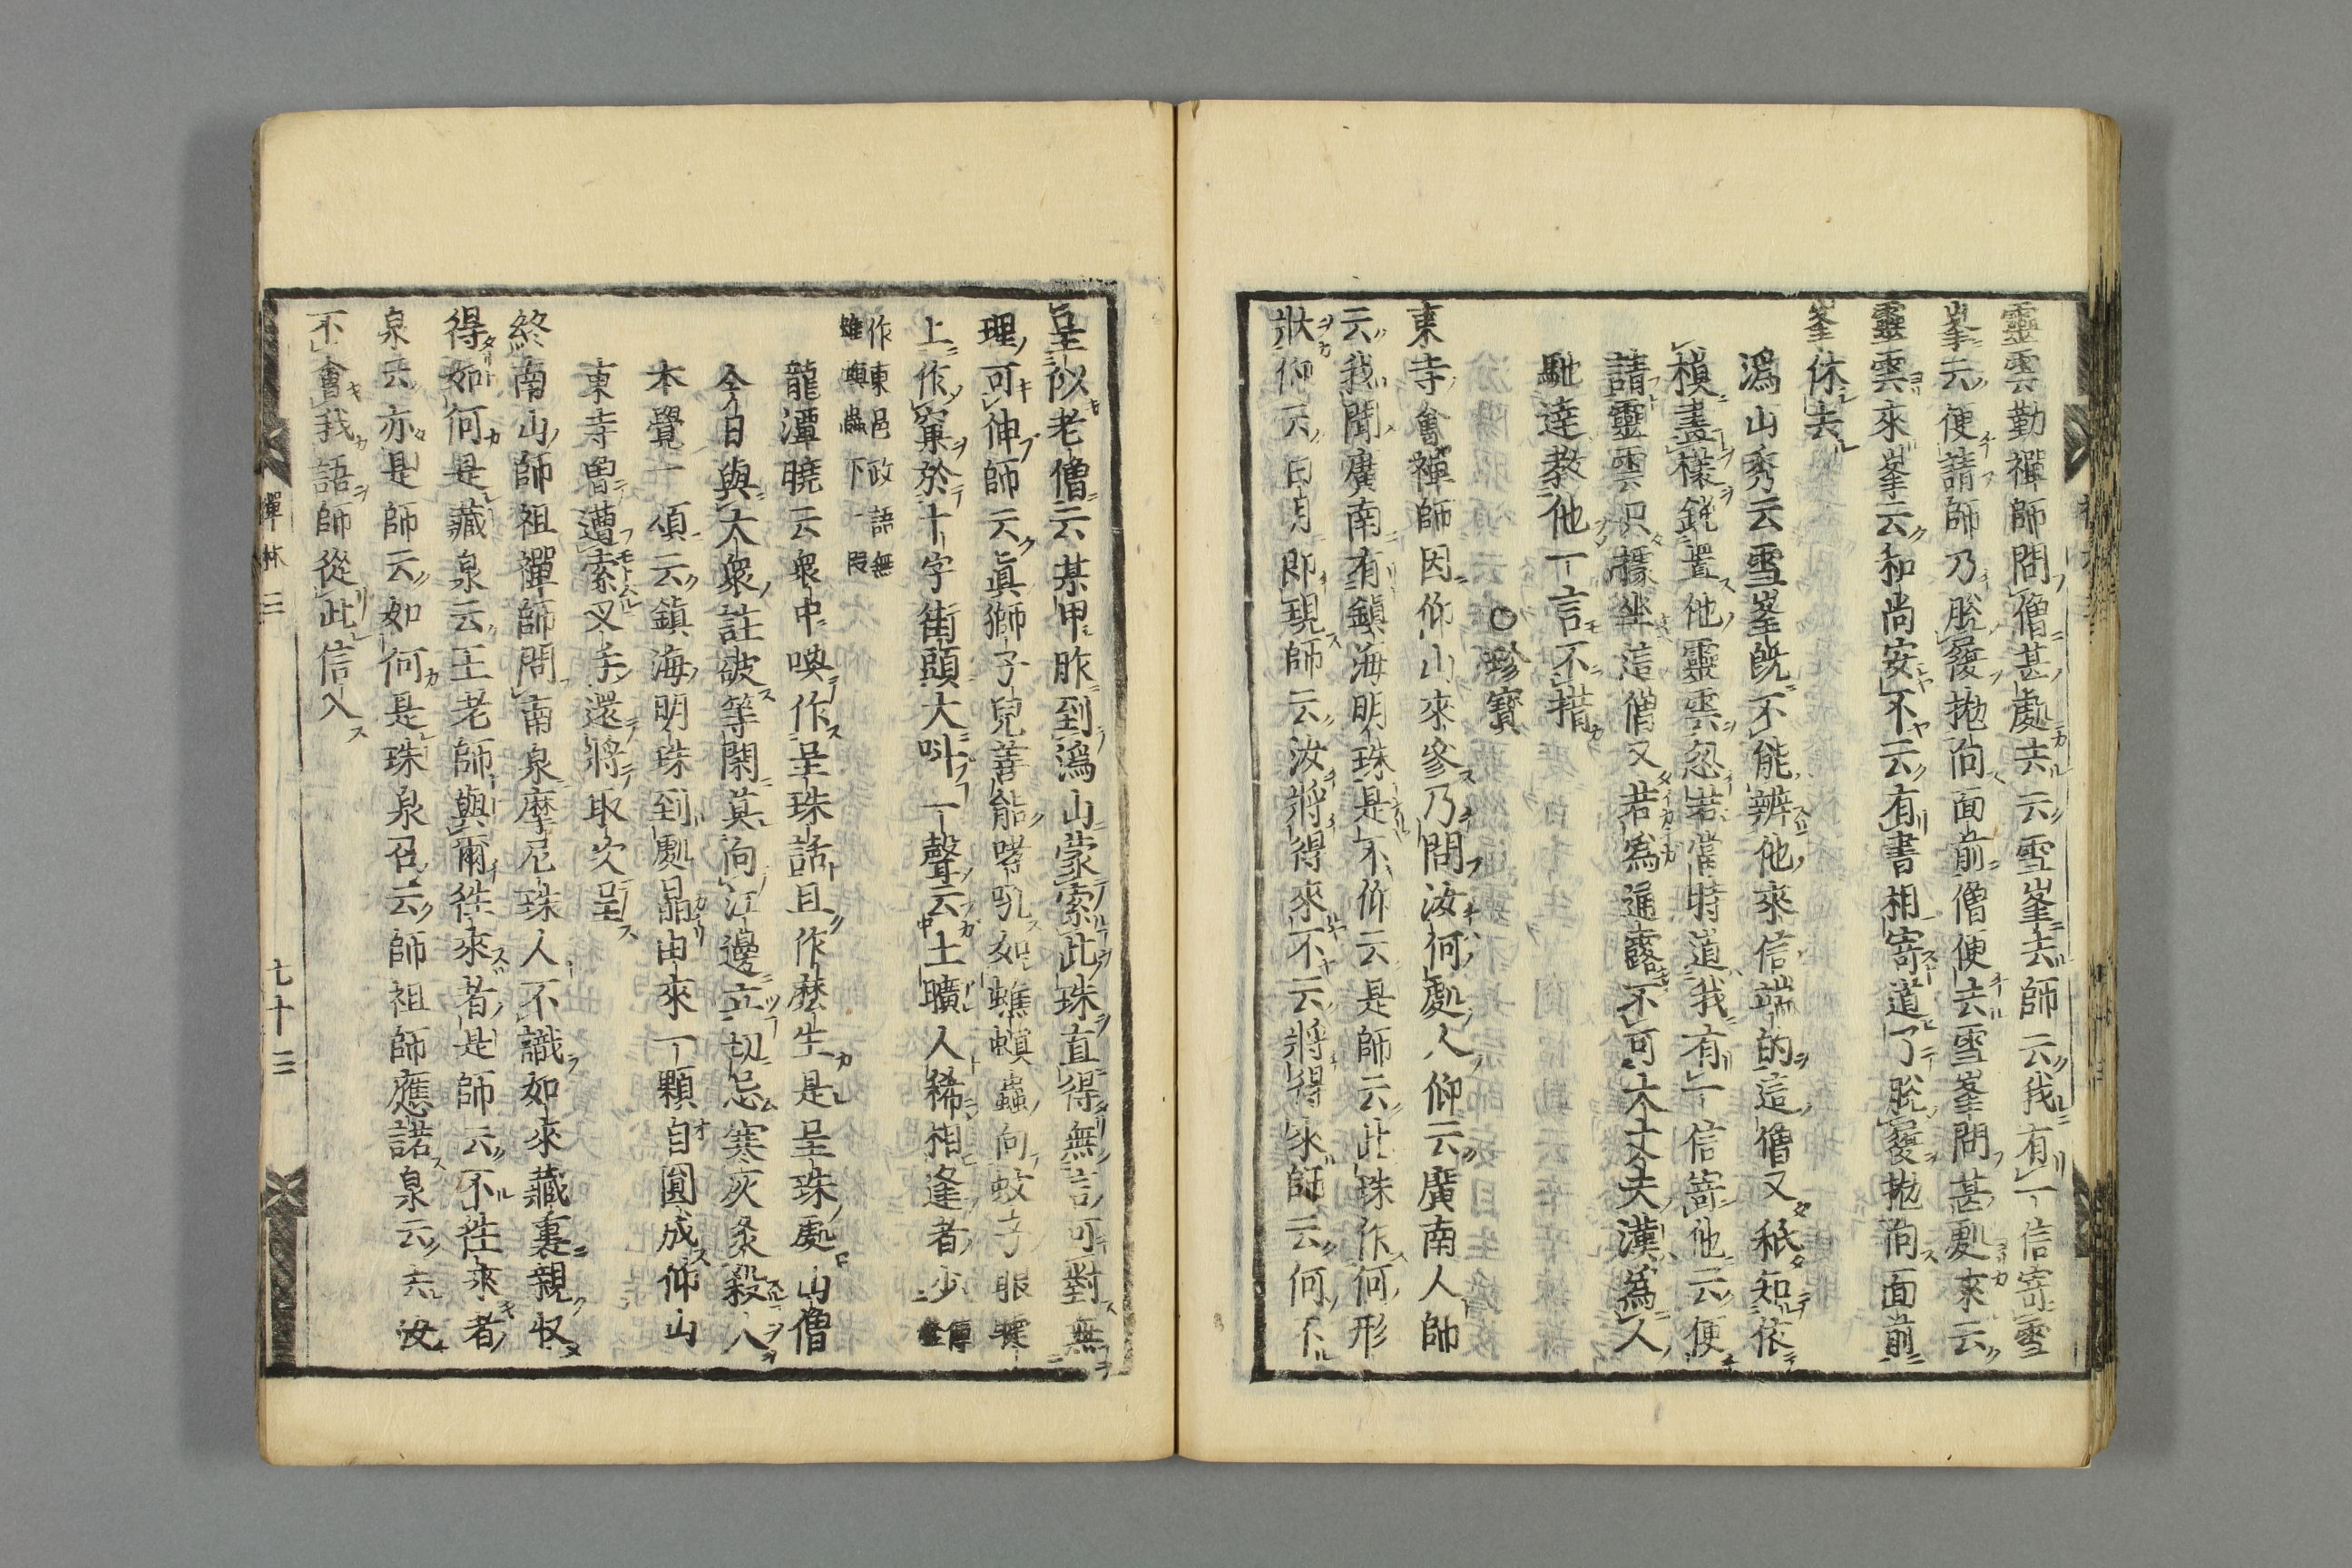 靈雲勤禪師問僧甚處去云雪峯去師云我有一信寄雪
峯云便請師乃脫履抛向面前僧便去雪峯問甚處來云
靈雲來峯云和尚安不云有書相寄道了脫履抛向面前
峯休去
溈山秀云雪峯旣不能辨他來信端的這僧又秖知依
模畫樣鈍置他靈雲忽若當時道我有一信寄他云便
請靈雲只據坐這僧又若爲通露不可大丈夫漢爲人
馳達教他一言不措
○珍寶
東寺會禪師因仰山來參乃問汝何處人仰云廣南人師
云我聞廣南有鎭海明珠是不仰云是師云此珠作何形
狀仰云白月即現師云汝將得來不云將得來師云何不
呈似老僧云某甲昨到溈山蒙索此珠直得無言可對無
理可伸師云眞獅子兒善能哮吼如蟭螟蟲向蚊子眼睫
上作窠於十字街頭大叫一聲云土曠人稀相逢者少傳燈
作東邑政語無
下一段
龍潭曉云衆中喚作呈珠話且作麽生是呈珠處山僧
今日與大衆註破等閑莫向江邊立切忌寒灰煑殺人
本覺一頌云鎭海明珠到處晶由來一顆自圓成仰山
東寺曾遭索叉手還將取次呈
終南山師祖禪師問南泉摩尼珠人不識如來藏裏親収
得如何是藏泉云王老師與爾徃來者是師云不徃來者
泉云亦是師云如何是珠泉召云師祖師應諾泉云去汝
不會我語師從此信入
禪林 三 七十三